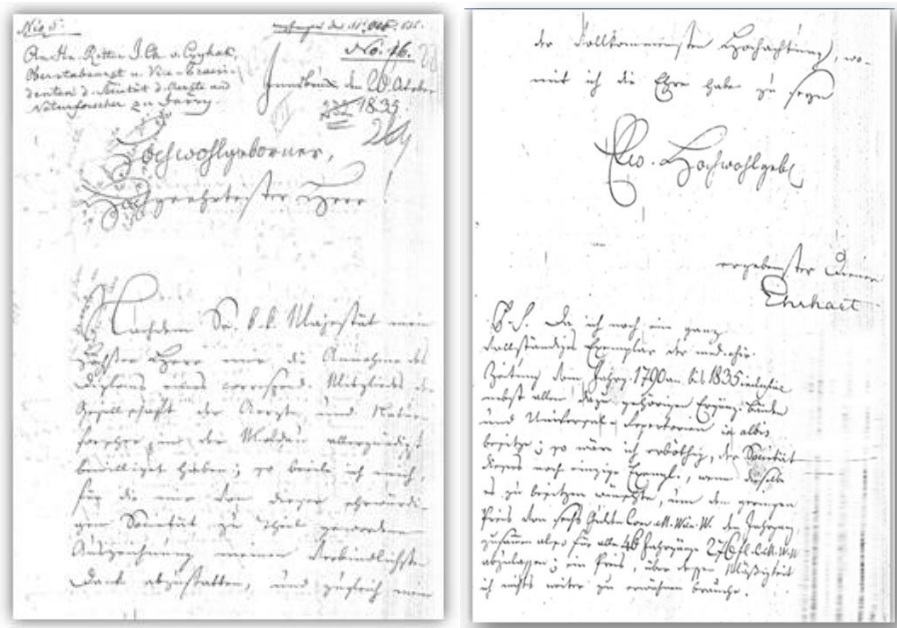 No. 16.
Innsbruck den 20 October
1835.
An Hr. Ritter J. Ch. v. Czyhak,
Oberstabsarzt u. Vice-Präsi-
denten d. Societät d. Aerzte und
Naturforscher zu Jassy.
Hochwohlgeborner,
Hochgeehrtester Herr!
Nachdem Se. k. k. Majestät mein
Höchster Herr mir die Annahme des
Diploms eines correspond. Mitglieds der
Gesellschaft der Aerzte und Natur-
forscher in der Moldau allergnädigst
bewilliget haben; so beeile ich mich,
für die mir von dieser ehrwürdi-
gen Societät zu Theil gewordene
Auszeichnung meinen verbindlichsten
Dank abzustatten, und zugleich
der vollkommensten Hochachtung, wo-
mit ich die Ehre habe zu seyn
Ew. Hochwohlgeb.
ergebenster Diener
Ehrhart
P. S. Da ich noch ein ganz
vollständiges Exemplar der med. chir.
Zeitung vom Jahrg. 1790 an bis 1835 inclusive
nebst allen dazu gehörigen Ergänz. bänden
und Universal-Repertorien in albis
besitze; so wäre ich erböthig, der Societät
dieses noch einzige Exempl., wenn dieselbe
es zu besitzen wünschte, um den geringen
Preis von sechs Gulden Conv. M. W. W. den Jahrgang,
zusammen also für alle 46 Jahrgänge 276 fl. C. M. W. W.
abzulassen; ein Preis, über dessen Mäßigkeit
ich nichts weiter zu erwähnen brauche.